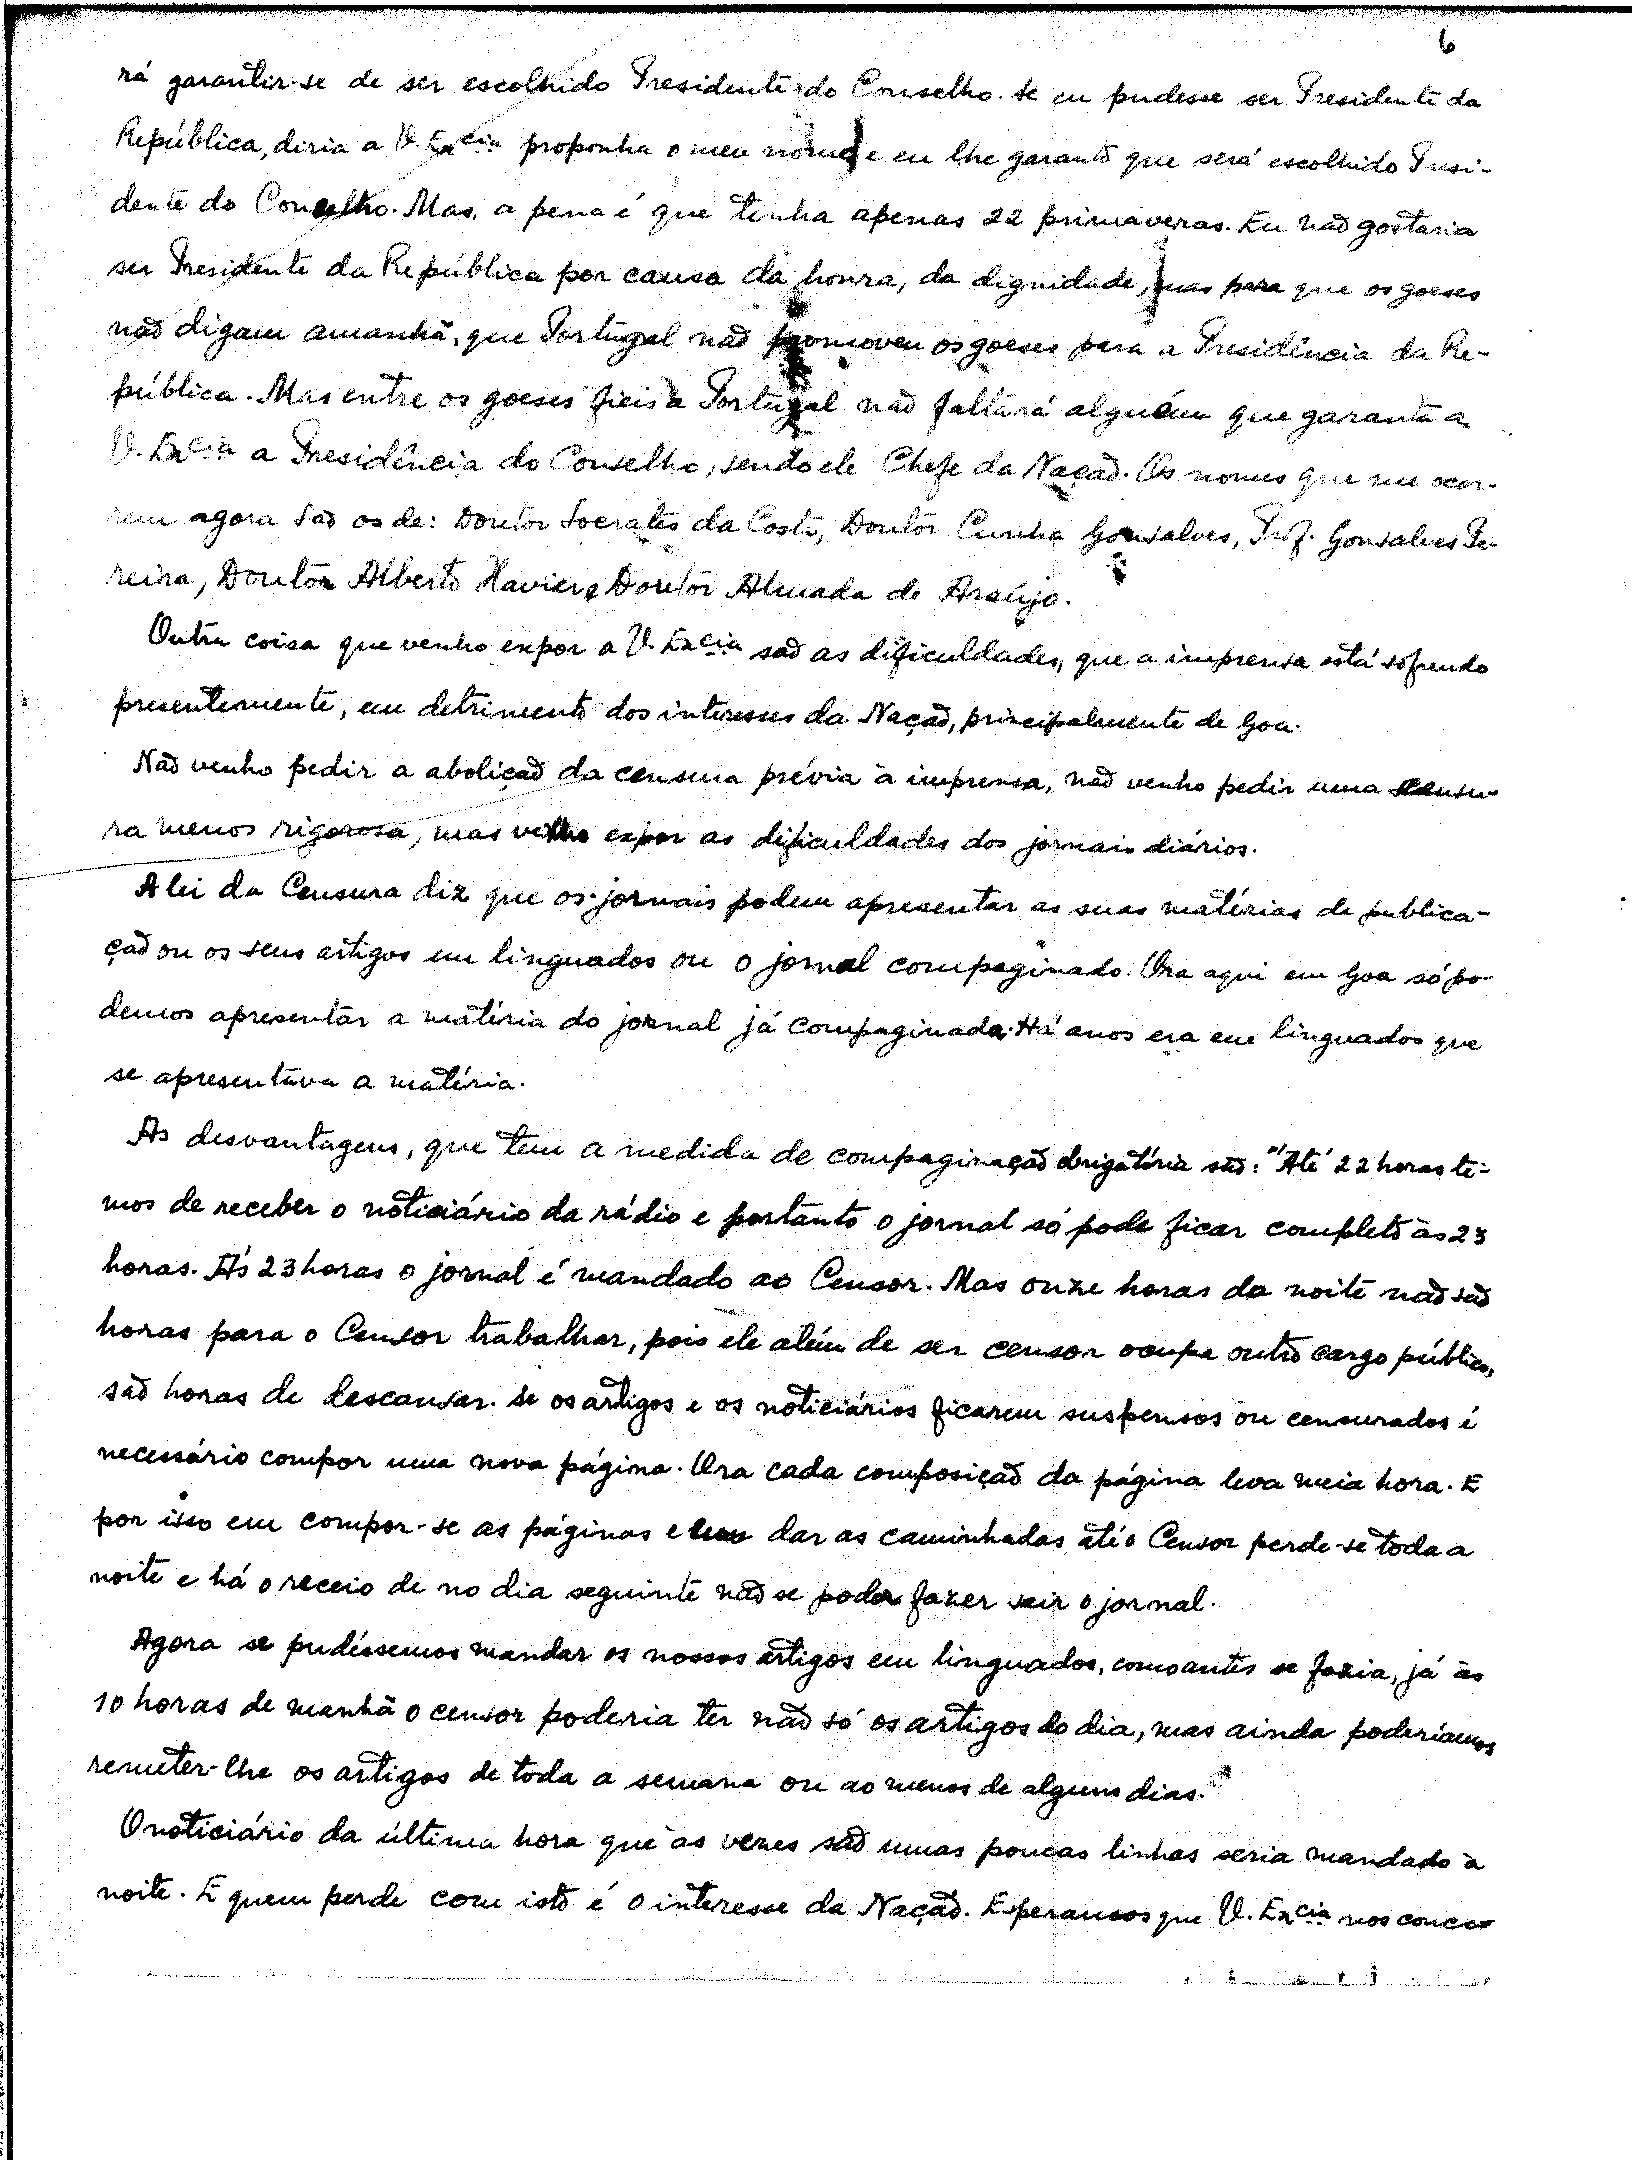 6
rá garantir-se de ser escolhido Presidente do Conselho. Se eu pudesse ser Presidente da
República, diria a V. Excia proponha o meu nome e eu lhe garanto que será escolhido Presi-
dente do Conselho. Mas, a pena é que tenha apenas 22 primaveras. Eu não gostaria
ser Presidente da República por causa da honra, da dignidade, mas para que os goeses
não digam amanhã, que Portugal não promoveu os goeses para a Presidência da Re-
pública. Mas entre os goeses fieis a Portugal não faltará alguém que garanta a
V. Excia a Presidência do Conselho, sendo ele Chefe da Nação. Os nomes que me ocor-
rem agora são os de: Doutor Socrates da Costa, Doutor Cunha Gonsalves, Prof. Gonsalves Pe-
reira, Doutor Alberto Xavier e Doutor Almada de Araújo.
Outra coisa que venho expor a V. Excia são as dificuldades, que a imprensa está sofrendo
presentemente, em detrimento dos interesses da Nação, principalmente de Goa.
Não venho pedir a abolição da censura prévia à imprensa, não venho pedir uma censu-
ra menos rigorosa, mas venho expor as dificuldades dos jornais diários.
A lei da Censura diz que os jornais podem apresentar as suas matérias de publica-
ção ou os seus artigos em linguados ou o jornal compaginado. Ora aqui em Goa só po-
demos apresentar a matéria do jornal já compaginada. Há anos era em linguados que
se apresentava a matéria.
As desvantagens, que tem a medida de compaginação obrigatória são: "Até 22 horas te-
mos de receber o noticiário da rádio e portanto o jornal só pode ficar completo às 23
horas. Às 23 horas o jornal é mandado ao Censor. Mas onze horas da noite não são
horas para o Censor trabalhar, pois ele além de ser censor ocupa outro cargo público,
são horas de descansar. Se os artigos e os noticiários ficarem suspensos ou censurados é
necessário compor uma nova página. Ora cada composição da página leva meia hora. E
por isso em compor-se as páginas e em dar as caminhadas até o Censor perde-se toda a
noite e há o receio de no dia seguinte não se poder fazer sair o jornal.
Agora se pudéssemos mandar os nossos artigos em linguados, como antes se fazia, já às
10 horas de manhã o censor poderia ter não só os artigos do dia, mas ainda poderíamos
remeter-lhe os artigos de toda a semana ou ao menos de alguns dias."
O noticiário da última hora que as vezes são umas poucas linhas seria mandado à
noite. E quem perde com isto é o interesse da Nação. Esperamos que V. Excia nos conce-